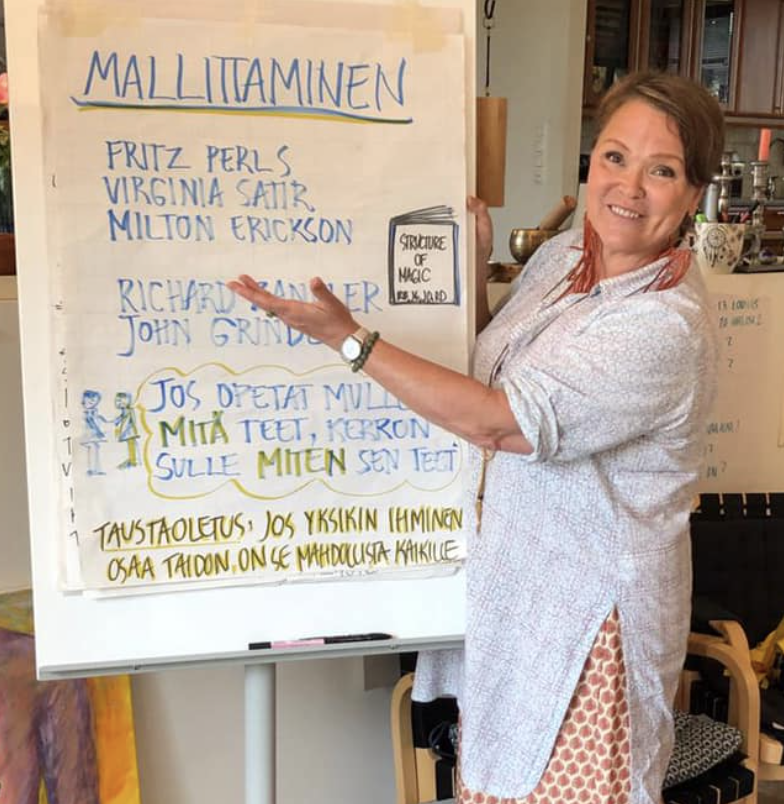 MALLITTAMINEN
FRITZ PERLS
VIRGINIA SATIR
MILTON ERICKSON
STRUCTURE
OF
MAGIC
RICHARD
JOHN
JOS OPETAT
MITÄ TEET, KERRON
SULLE MITEN SEN TEET
TAUSTAOLETUS: JOS YKSIKIN IHMINEN
OSAA TAIDON, ON SE MAHDOLLISTA KAIKILLE